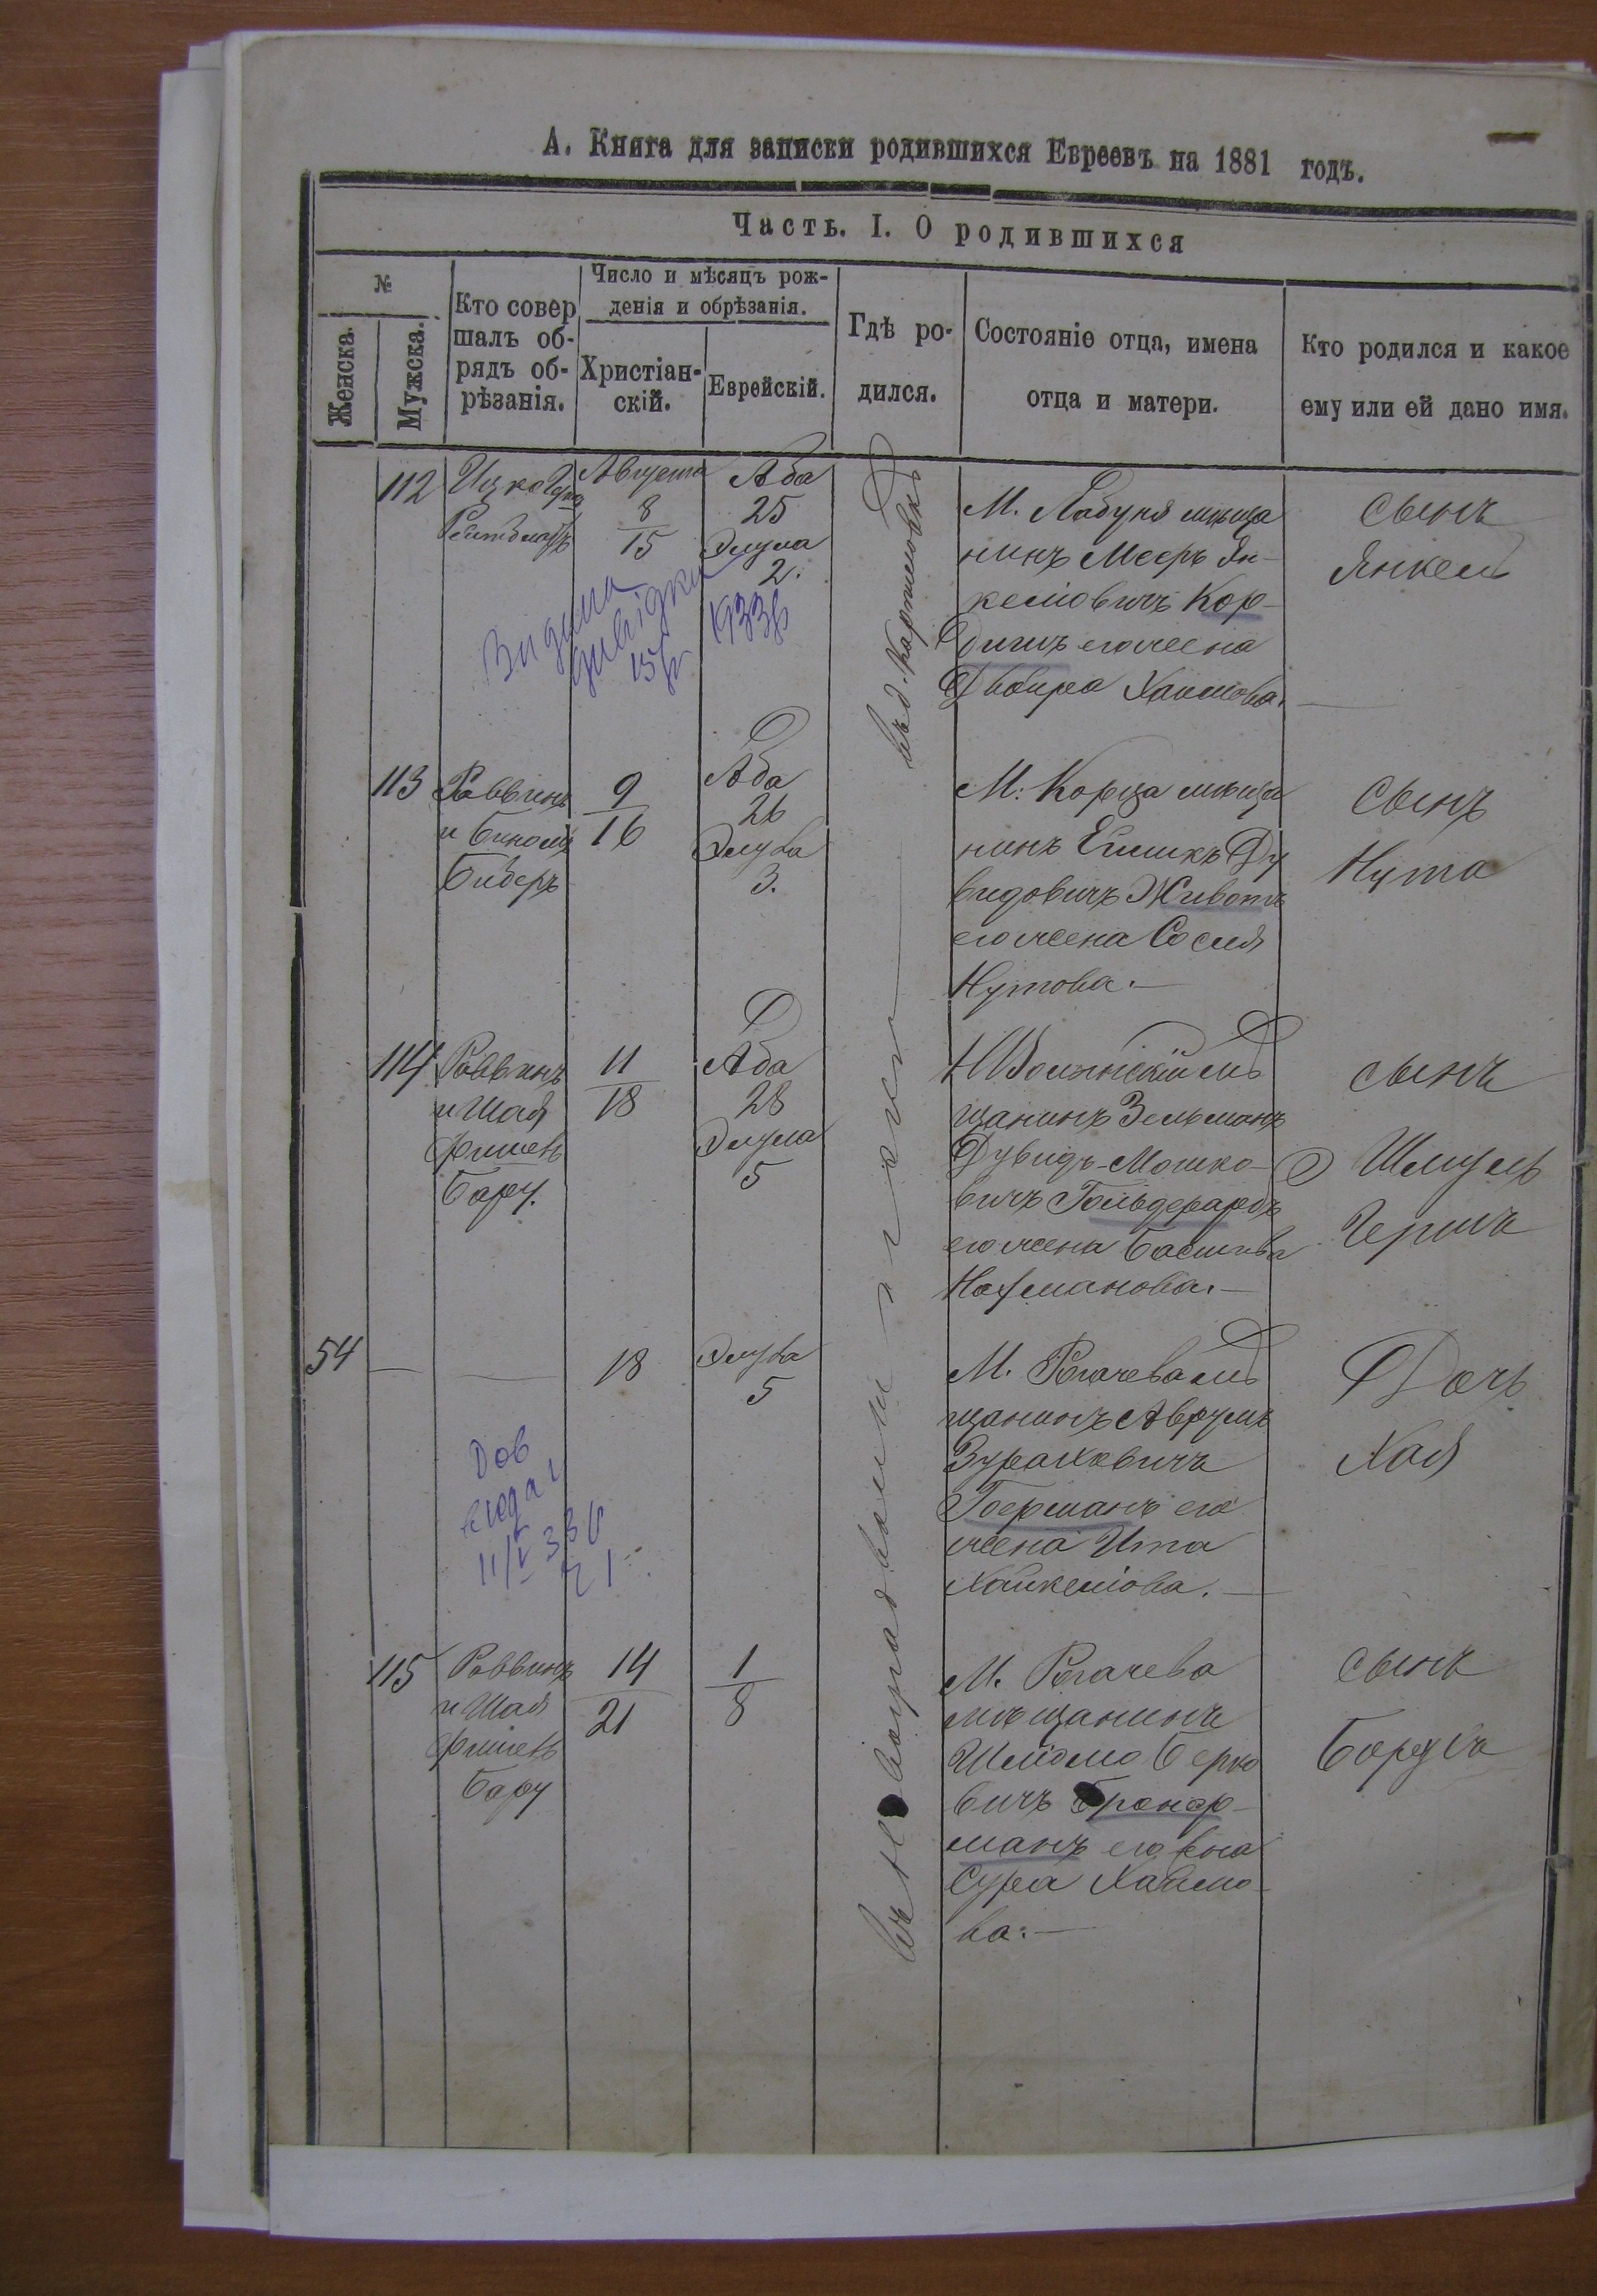 А. Книга для записки родившихся Евреевъ на 1881 годъ.
Часть. I. О родившихся
№
Женска.
Мужска.
Кто совер
шалъ об-
рядъ об-
рѣзанія.
Число и мѣсяцъ рож-
денія и обрѣзанія.
Христіан-
скій.
Еврейскій.
Гдѣ ро-
дился.
Состояніе отца, имена
отца и матери.
Кто родился и какое
ему или ей дано имя.
112
Ицко
Августа
8
15
Аба
25
Элула
2.
въ д.
М. Лабуня мѣща
нинъ Мееръ Ян-
келіовичъ Кор-
его жена
Двойра Хаимова.
сынъ
Янкель
Видана
довідка
1936
113
Раввинъ
и
Биберъ
9
16
Аба
26
Элула
3.
М. Корца мѣща
нинъ Ду
видовичъ Животъ
его жена Сося
Нутова.
сынъ
Нута
114
Раввинъ
и Шая
Фишель
Бару.
11
18
Аба
28
Элула
5
Н Волынскій мѣ
щанинъ Зельманъ
Дувидъ-Мошко-
вичъ Гольдфарбъ
его жена Басшива
Нахманова.
сынъ
Шмуль
Гершъ
54
18
Элула
5
М. Рогачева мѣ
щанинъ Аврумъ
его
жена Ита
Хаикеліова.
Дочь
Хая
115
Раввинъ
и Шая
Фишель
Бару
14
21
1
8
М. Рогачева
мѣщанинъ
Шліомо Берко
вичъ
манъ его жена
Сура Хаимо-
ва:
сынъ
Борухъ
въ Новоградволынскѣ